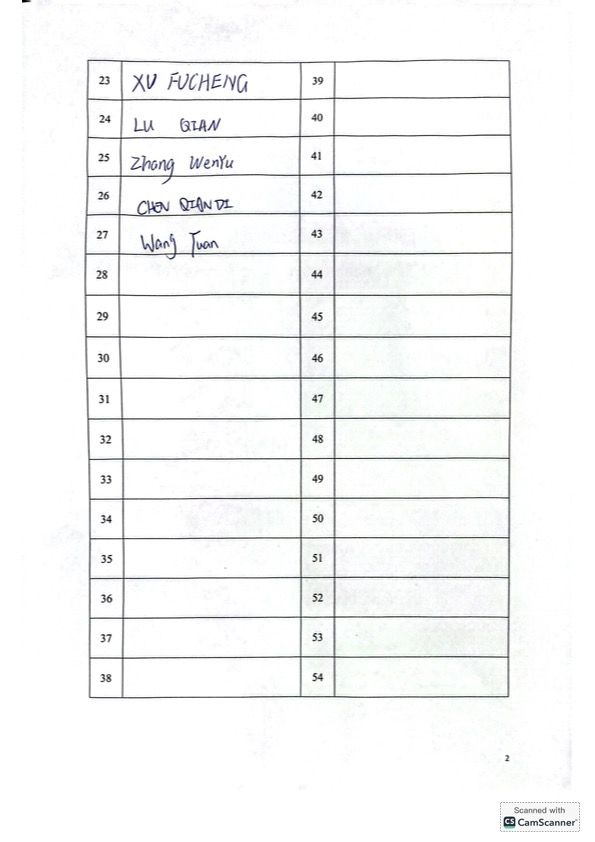 23 XU FUCHENG 39
24 LU QIAN 40
25 Zhang WenYu 41
26 CHEN QIANDI 42
27 Wang Tuan 43
28 44
29 45
30 46
31 47
32 48
33 49
34 50
35 51
36 52
37 53
38 54
2
Scanned with
CS CamScanner